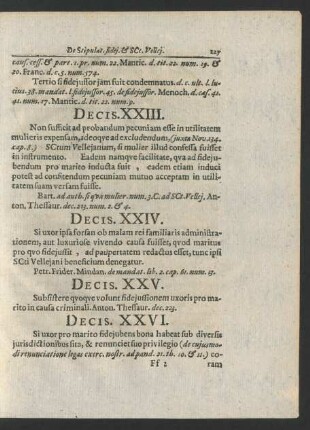 De Stipulat. fidej. & SCt. Vellej. 227
caus. cess. & part. 1. pr. num. 22. Mantic. d. tit. 22. num. 19. &
20. Franc. d. c. 5. num. 374.
Tertio si fidejussor jam fuit condemnatus. d. c. ult. l. Lu-
tius. 28. mandat. l. fidejussor. 45. de fidejussor. Menoch. d. cas. 41.
41. num. 17. Mantic. d. tit. 22. num. 9.
DECIS. XXIII.
Non sufficit ad probandum pecuniam esse in utilitatem
mulieris expensam, adeoqve ad excludendum (juxta Nov. 134.
cap. 8.) SCtum Vellejanum, si mulier illud confessa fuisset
in instrumento. Eadem namqve facilitate, qva ad fideju-
bendum pro marito inducta fuit, eadem etiam induci
potest ad confitendum pecuniam mutuo acceptam in utili-
tatem suam versam fuisse.
Bart. ad auth. si qva mulier. num. 3. C. ad SCt. Vellej. An-
ton. Thessaur. dec. 223. num. 2. & 4.
DECIS. XXIV.
Si uxor ipsa forsan ob malam rei familiaris administra-
tionem, aut luxuriose vivendo causa fuisset, qvod maritus
pro qvo fidejussit, ad paupertatem redactus esset, tunc ipsi
SCti Vellejani beneficium denegatur.
Petr. Frider. Mindan. de mandat. lib. 2. cap. 61. num. 17.
DECIS. XXV.
Subsistere qvoqve volunt fidejussionem uxoris pro ma-
rito in causa criminali. Anton. Thessaur. dec. 223.
DECIS. XXVI.
Si uxor pro marito fidejubens bona habeat sub diversis
jurisdictionibus sita, & renunciet suo privilegio (de cujusmo-
di renunciatione legas exerc. nostr. ad pand. 21. th. 10. & 11.) co-
Ff 2 ram